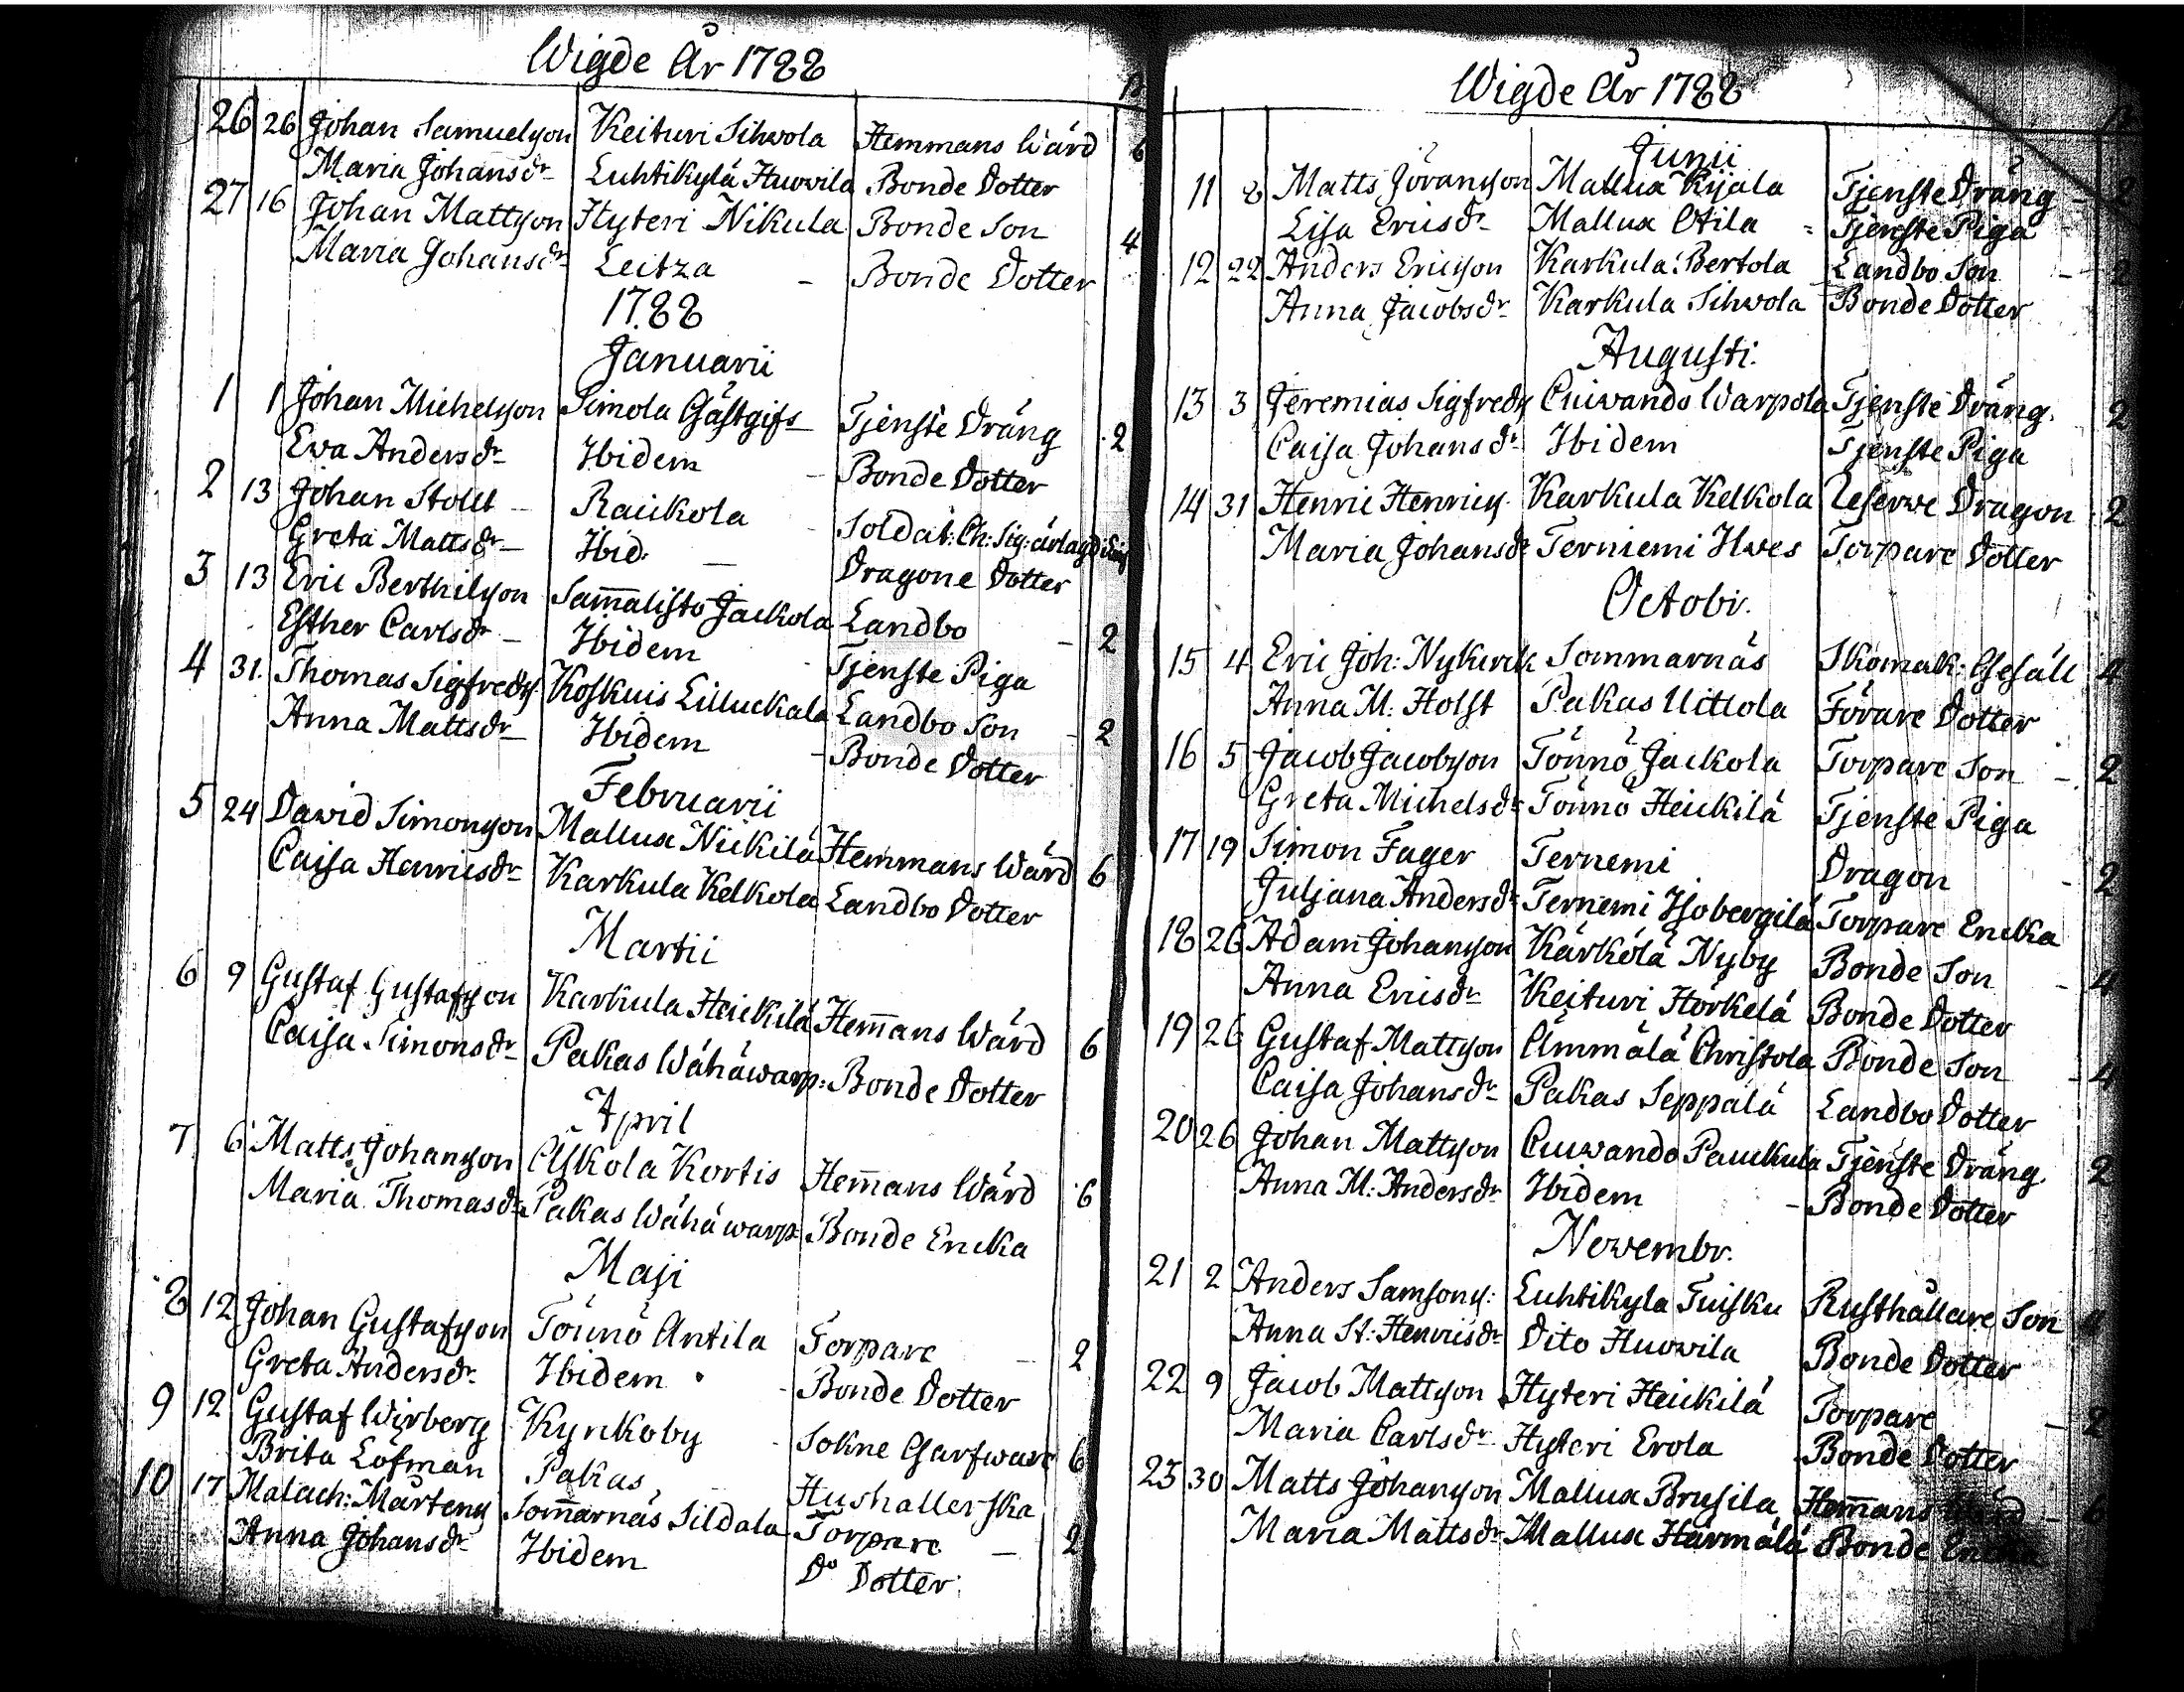 Wigde År 1788
26 26 Johan Samuelson Keituri Sihvola Hemmans Wärd 6
Maria Johansdr Luhtikylä Huovila Bonde Dotter
27 16 Johan Mattson Hyteri Nikula Bonde Son 4
Maria Johansdr Leitza - Bonde Dotter
1788
Januarii
1 1 Johan Michelson Simola Gästgifs Tjenste Dräng 2
Ewa Andersdr Ibidem - Bonde Dotter
2 13 Johan Stolt - Raikola - Soldat: Ch: Sig:
Greta Mattsdr Ibid: - Dragone Dotter
3 13 Eric Berthilson Sam̄alisto Jackola Landbo - 2
Esther Carlsdr - Ibidem - Tjenste Piga
4 31. Thomas Sigfreds Koskuis Lilluckala Landbo Son - 2
Anna Mattsdr Ibidem - Bonde Dotter
Februarii
5 24 David Simonson Mallux Nickilä Hemmans Wärd 6
Caisa Henricsdr Karkula Kelkola Landbo Dotter
Martii
6 9 Gustaf Gustafson Karkula Heickilä Hem̄ans Wärd 6
Caisa Simonsdr Pakas Wähäwarp: Bonde Dotter
April
7 6 Matts Johanson Askola Kortis Hem̄ans Wärd 6
Maria Thomasdr Pakas Wähäwarp: Bonde Encka
Maji
8 12 Johan Gustafson Tönnö Antila Torpare - 2
Greta Andersdr Ibidem - Bonde Dotter
9 12 Gustaf Wirberg Kynkoby - Sokne Garfware 6
Brita Löfman Pakas - Hushållerska
10 17 Malach: Mårtens Som̄arnäs Sildala Torpare - 2
Anna Johansdr Ibidem Do Dotter
Wigde År 1788
Junii
11 8 Matts Jöranson Mallux Kijala Tjenste Dräng - 2
Lisa Ericsdr Mallux Otila - Tjenste Piga
12 22 Anders Ericson Karkula Bertola Landbo Son - 2
Anna Jacobsdr Karkula Sihvola Bonde Dotter
Augusti.
13 3 Jeremias Sigfreds Cuivando Warpola Tjenste Dräng. 2
Caisa Johansdr Ibidem Tjenste Piga
14 31 Henric Henrics Karkula Kelkola Reserve Dragon 2
Maria Johansdr Terniemi Ilves Torpare Dotter
Octobr.
15 4 Eric Joh: Nykvik Sommarnäs Skomak: Gesäll 4
Anna M: Holst Pakas Uittola Förare Dotter
16 5 Jacob Jacobson Tönnö Jackola Torpare Son - 2
Greta Michelsdr Tönnö Heickilä Tjenste Piga
17 19 Simon Fager Ternemi Dragon - 2
Juljana Andersdr Ternemi Torpare Encka
18 26 Adam Johanson Kärkölä Nyby Bonde Son - 4
Anna Ericsdr Keituri Hörkelä Bonde Dotter
19 26 Gustaf Mattson Ämmälä Christola Bonde Son - 4
Caisa Johansdr Pakas Seppälä Landbo Dotter
20 26 Johan Mattson Cuivando Paukula Tjenste Dräng. 2
Anna M: Andersdr Ibidem - Bonde Dotter
Novembr.
21 2 Anders Samsons: Luhtikyla Tuisku Rusthållare Son 4
Anna St: Henricsdr Dito Huovila Bonde Dotter
22 9 Jacob Mattson Hyteri Heickilä Torpare - 2
Maria Carlsdr Hyteri Erola Bonde Dotter
23 30 Matts Johanson Mallux Brusila Hem̄ans Wärd - 6
Maria Mattsdr Mallux Härmälä Bonde Encka